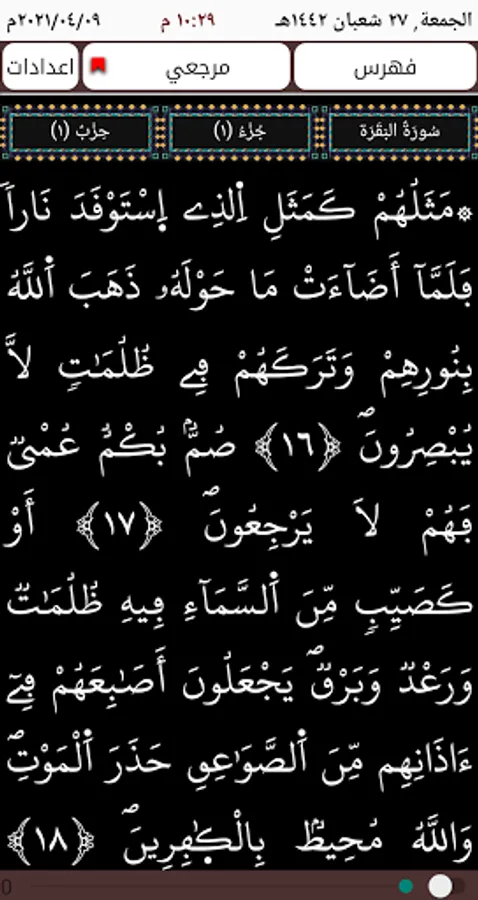 الجمعة, ٢٧ شعبان ١٤٤٢هـ ١٠:٢٩ م ٢٠٢١/٠٤/٠٩م
فهرس مرجعي اعدادات
سُورَةُ البَقَرَة جُزْءُ (١) حِزْبُ (١)
۞مَثَلُهُمْ كَمَثَلِ اِ۬لذِے اِ۪سْتَوْقَدَ نَاراٗ
فَلَمَّآ أَضَآءَتْ مَا حَوْلَهُۥ ذَهَبَ اَ۬للَّهُ
بِنُورِهِمْ وَتَرَكَهُمْ فِے ظُلُمَٰتٖ لَّا
يُبْصِرُونَۖ ﴿١٦﴾ صُمُّۢ بُكْمٌ عُمْيٞ
فَهُمْ لَا يَرْجِعُونَۖ ﴿١٧﴾ أَوْ
كَصَيِّبٖ مِّنَ اَ۬لسَّمَآءِ فِيهِ ظُلُمَٰتٞ
وَرَعْدٞ وَبَرْقٞۖ يَجْعَلُونَ أَصَٰبِعَهُمْ فِےٓ
ءَاذَانِهِم مِّنَ اَ۬لصَّوَٰعِقِ حَذَرَ اَ۬لْمَوْتِۖ
وَاللَّهُ مُحِيطُۢ بِالْكٰ۪فِرِينَۖ ﴿١٨﴾
0